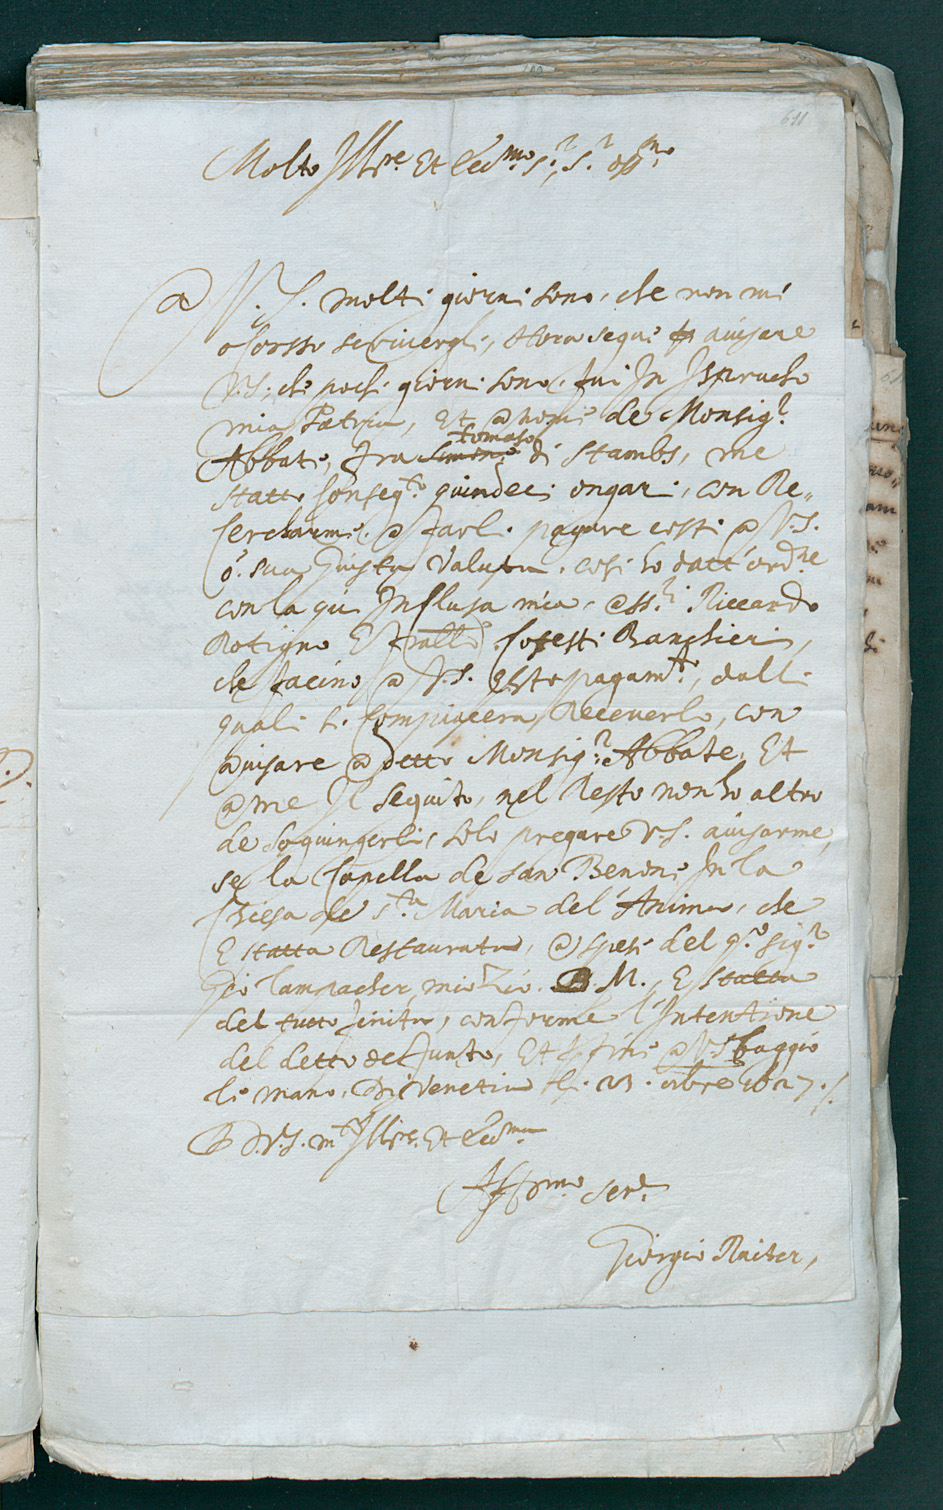 611
Molto Ill.re Et Ecc.mo S.r, S.r oss.mo
@ V. S. molti giorni sono, che non mi
ocorsso scrivergli, Hora segue avisare
V.S. che pochi giorni sono fui In Ispruchо
mia Patria, Et @ nome de Monsig.r
Abbate, fra Simone tomaso di Stambs, me
statto Conseg.to quindeci ongari, con Re„
cercharmi @ farli pagare costi @ V.S.
ó sua Giusta Valuta. cosi ho datt'ord.ne
con la qui Inclusa mia, @ SS.ri Riccardo
Rotigno E fratelli Cotesti Banchieri,
che facino @ V.S. questo pagam.to, dalli
quali si Compiacera Receverlo, con
avisare @ detto Monsig.r Abbate, Et
@ me Il seguito, nel Resto non ho altro
de Sogiungerli, solo pregare V.S. avisarme,
se la Capella de San Benone In la
Chiesa de S.ta Maria del'Anima, che
E statta Restaurata, @ spese del q. Sig.r
Gio Lampacher mio Zio. B. M., E statta
del tutto finita, conforme l'Intentione
del detto defunto, Et per fine @ V.S. baggio
le mano, Di Venetia li. 23. 1627./.
D. V.S. m.to Ill.re Et Ecc.ma
Aff.mo Ser.
Giorgio Raiter,